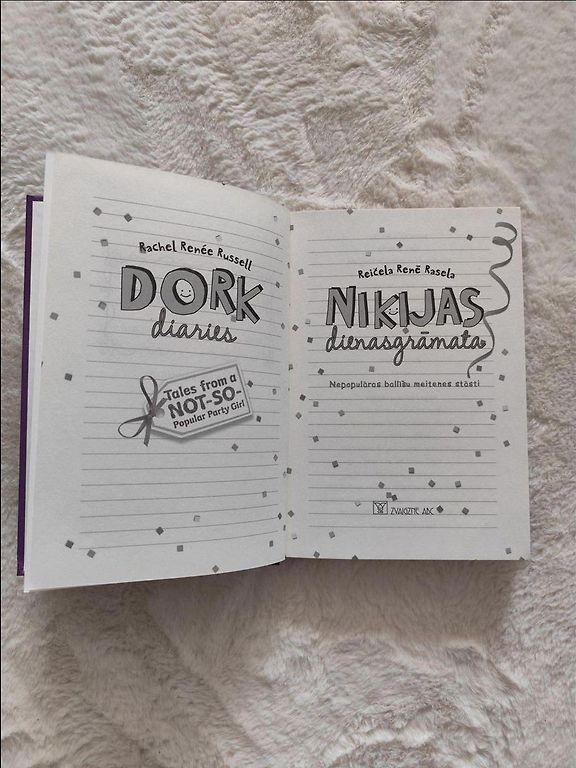 Rachel Renée Russell
DORK
diaries
Tales from a
NOT-SO-
Popular Party Girl
Reičela Renē Rasela
NIKIJAS
dienasgrāmata
Nepopulāras ballīšu meitenes stāsti
ZVAIGZNE ABC